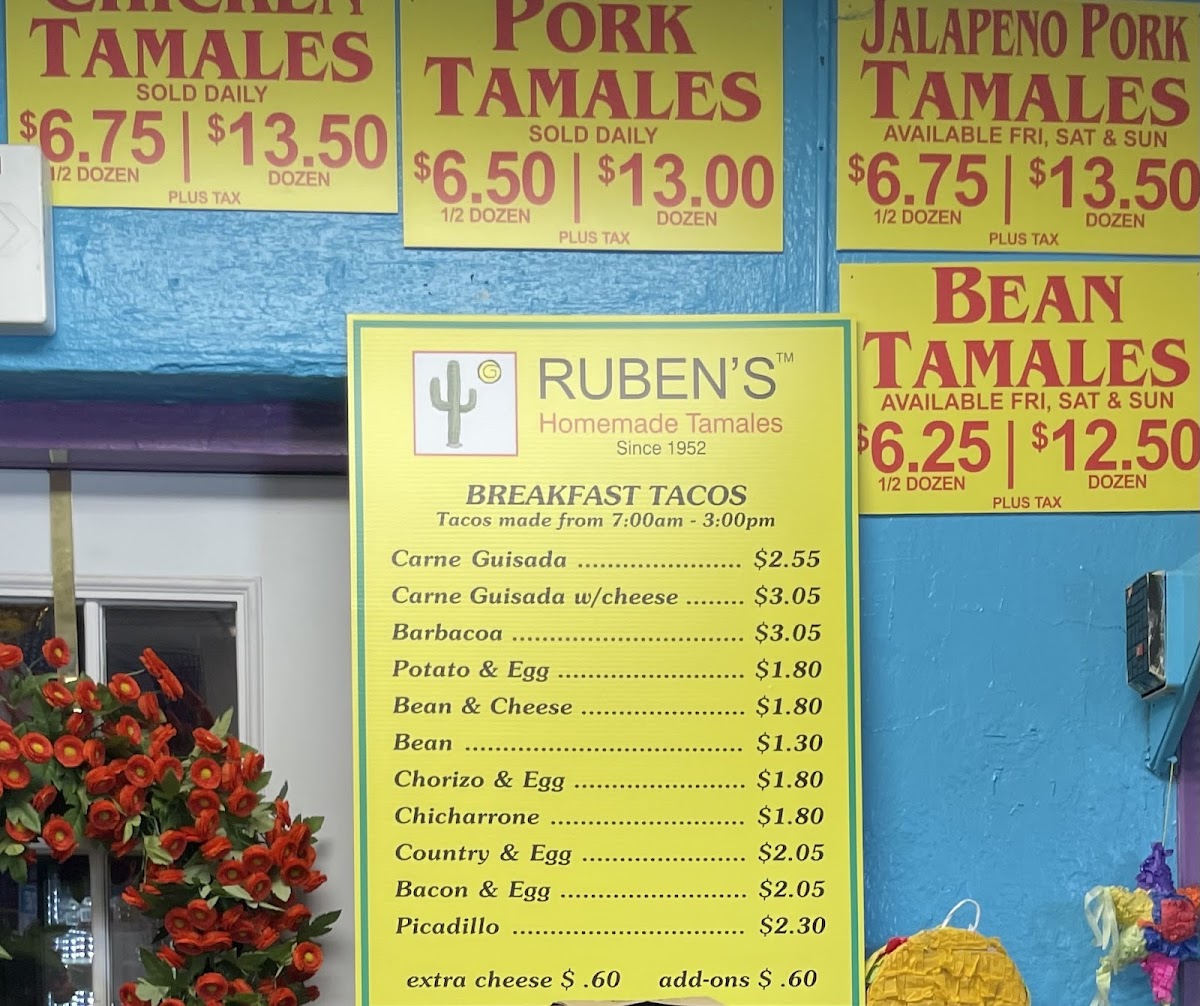 CHICKEN
TAMALES
SOLD DAILY
$6.75 | $13.50
1/2 DOZEN DOZEN
PLUS TAX
PORK
TAMALES
SOLD DAILY
$6.50 | $13.00
1/2 DOZEN DOZEN
PLUS TAX
JALAPENO PORK
TAMALES
AVAILABLE FRI, SAT & SUN
$6.75 | $13.50
1/2 DOZEN DOZEN
PLUS TAX
BEAN
TAMALES
AVAILABLE FRI, SAT & SUN
$6.25 | $12.50
1/2 DOZEN DOZEN
PLUS TAX
G
RUBEN'S™
Homemade Tamales
Since 1952
BREAKFAST TACOS
Tacos made from 7:00am - 3:00pm
Carne Guisada ...................... $2.55
Carne Guisada w/cheese ........ $3.05
Barbacoa ................................ $3.05
Potato & Egg .......................... $1.80
Bean & Cheese ....................... $1.80
Bean ...................................... $1.30
Chorizo & Egg ........................ $1.80
Chicharrone ........................... $1.80
Country & Egg ....................... $2.05
Bacon & Egg .......................... $2.05
Picadillo ................................ $2.30
extra cheese $ .60 add-ons $ .60